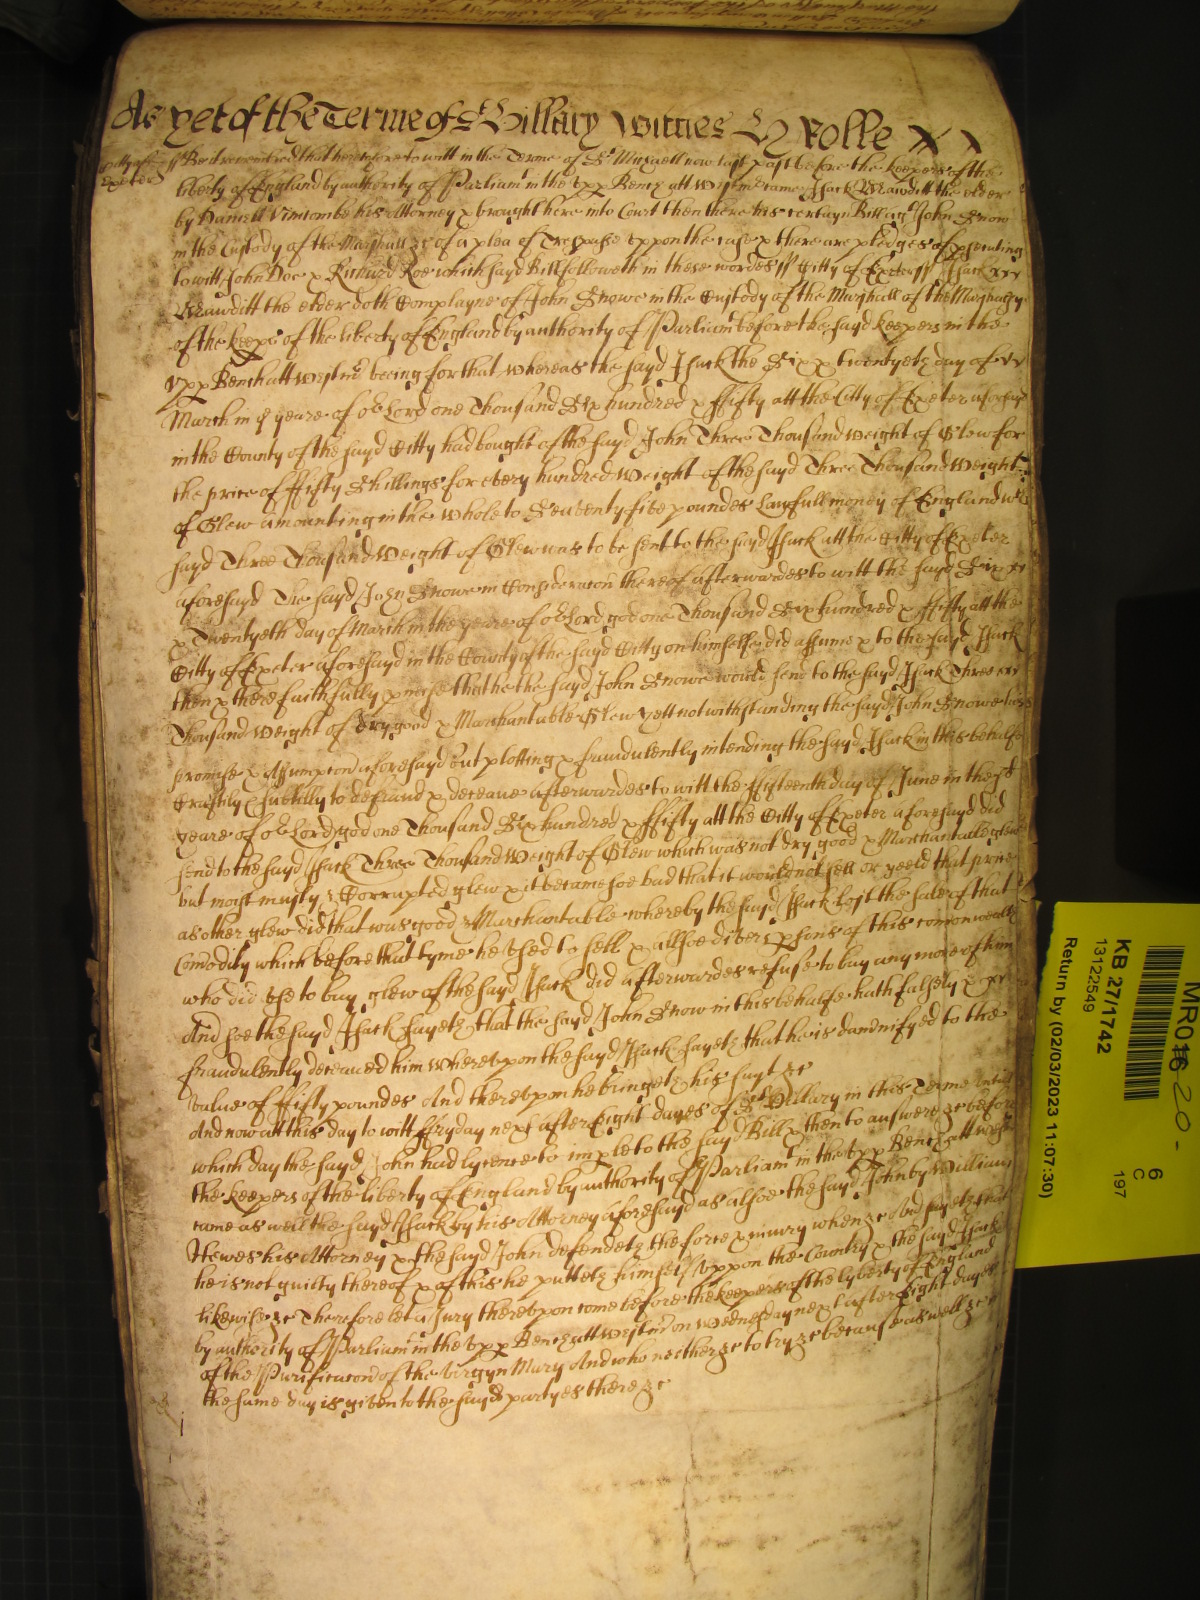 As yet of the Terme of St Hillary Witties Rolle xx
Citty of Exeter ss Be it remembred that heretofore to witt in the Terme of St Michaell now last past before the keepers of the
liberty of England by authority of Parliamt in the upp Bench att Westmr came Isack Mawditt the elder
by Daniell Vinicombe his Attorney & brought here into Court then there his certayn Bill agt John Snow
in the Custody of the Marshall &c of a plea of Trespasse uppon the case & there are pledges of psecuting
to witt John Doe & Richard Roe which sayd Bill followeth in these wordes ss Citty of Exeter ss Isack
Mawditt the elder doth Complayne of John Snowe in the Custody of the Marshall of the Marshalsy
of the keeps of the liberty of England by authority of Parliamt before the sayd keepers in the
upp Bench att Westmr being for that whereas the sayd Isack the Six & twentyeth day of
March in ye yeare of or Lord one Thousand Six hundred & ffifty att the Citty of Exeter aforesayd
in the County of the sayd Citty had bought of the sayd John Three Thousand weight of Glew for
the price of ffifty Shillings for every hundred Weight of the sayd Three Thousand Weight
of Glew amounting in the whole to Seaventy five poundes Lawfull money of England wch
sayd Three Thousand Weight of Glew was to be sent to the sayd Isack att the Citty of Exeter
aforesayd The sayd John Snowe in Consideracon thereof afterwardes to witt the sayd Six
& Twentyeth day of March in the yeare of or Lord god one Thousand Six hundred & ffifty att the
Citty of Exeter aforesayd in the County of the sayd Citty on himselfe did assume & to the sayd Isack
then & there faithfully pmise that he the sayd John Snowe would send to the sayd Isack Three
Thousand Weight of dry good & Marchantable Glew yett notwithstanding the sayd John Snowe his
promise & Assumpcon aforesayd but plotting & fraudulently intending the sayd Isack in this behalfe
Craftily & subtilly to defraud & deceave afterwardes to witt the ffifteenth day of June in the sd
yeare of or Lord god one Thousand Six hundred & ffifty att the Citty of Exeter aforesayd did
send to the sayd Isack Three Thousand Weight of Glew which was not dry good & Marchantable glew
but moyst musty & Corrupted glew & it became soe bad that it would not sell or yeeld that price
as other glew did that was good & Marchantable whereby the sayd Isack lost the sale of that
Comodity which before that tyme he used to sell & allsoe divers psons of this comonwealth
who did use to buy glew of the sayd Isack did afterwardes refuse to buy any more of him
And soe the sayd Isack sayeth that the sayd John Snow in this behalfe hath falsely &
fraudulently deceaved him whereupon the sayd Isack sayeth that he is damnifyed to the
value of ffifty poundes And thereupon he bringeth his suyt &c
And now att this day to witt ffryday next after Eight dayes of St Hillary in this Terme untill
which day the sayd John had lycence to imple to the sayd Bill & then to answere &c before
the keepers of the liberty of England by authority of Parliamt in the upp Bench att Westmr
came as well the sayd Isack by his Attorney aforesayd as alsoe the sayd John by William
Hewes his Attorney & the sayd John defendeth the force & iniury when &c And sayeth that
he is not guilty thereof & of this he putteth himself uppon the Country & the sayd Isack
likewise &c Therefore let a Jury thereupon come before the keepers of the lyberty of England
by authority of Parliamt in the upp Bench att Westmr on Wednesday next after Eight dayes
of the Purificacon of the Virgyn Mary And who neither &c to try &c because as well &c
the same day is given to the sayd partyes there &c
MR01620-
KB 271742
13122549
6
C
197
Return by (02/03/2023 11:07:30)